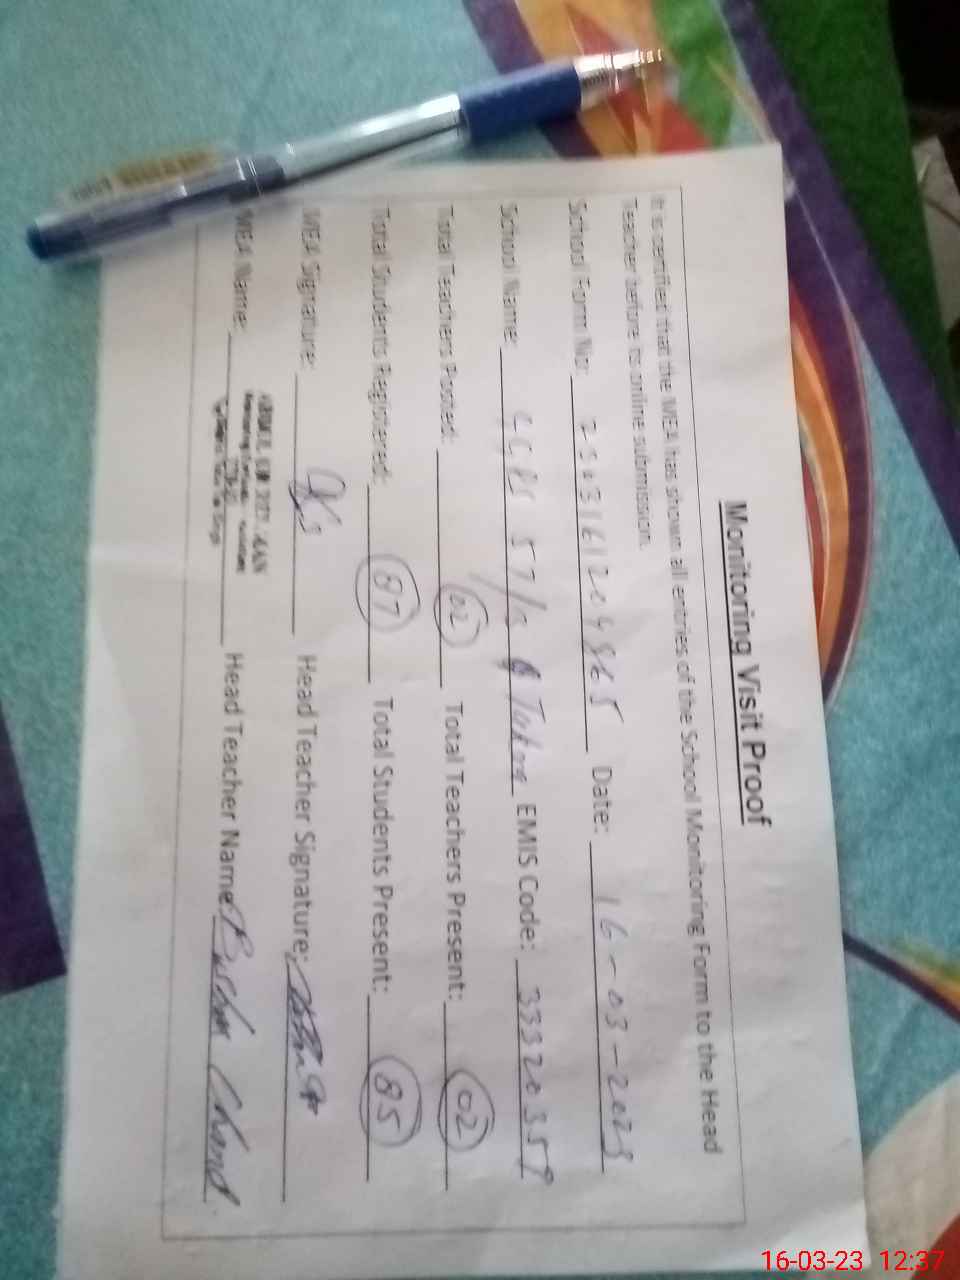 Monitoring Visit Proof
It is certified that the MEA has shown all entries of the School Monitoring Form to the Head
Teacher before its online submission.
School Form No: Date: 16-03-2023
School Name: 57/ EMIS Code: 33320359
Total Teachers Posted: 02 Total Teachers Present: 02
Total Students Registered: 87 Total Students Present: 85
MEA Signature: Head Teacher Signature:
MEA Name: Head Teacher Name: Chand
16-03-23 12:37